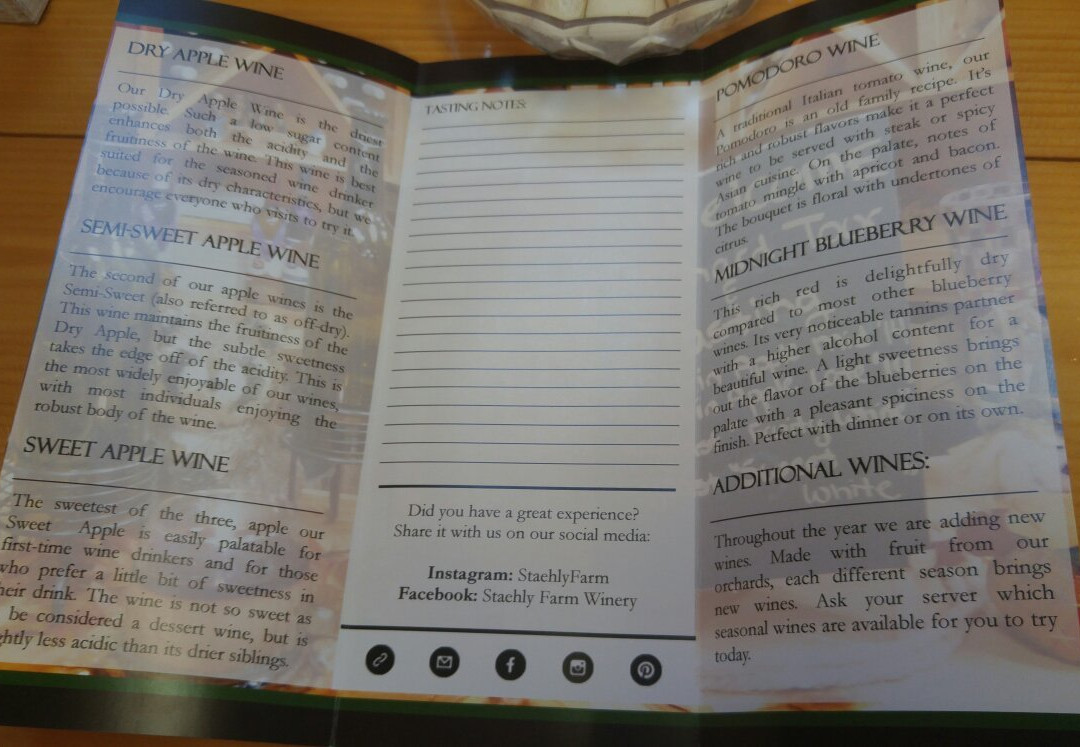 DRY APPLE WINE
Our Dry Apple Wine is the driest
possible. Such a low sugar content
enhances both the acidity and the
fruitiness of the wine. This wine is best
suited for the seasoned wine drinker
because of its dry characteristics, but we
encourage everyone who visits to try it.
SEMI-SWEET APPLE WINE
The second of our apple wines is the
Semi-Sweet (also referred to as off-dry).
This wine maintains the fruitiness of the
Dry Apple, but the subtle sweetness
takes the edge off of the acidity. This is
the most widely enjoyable of our wines,
with most individuals enjoying the
robust body of the wine.
SWEET APPLE WINE
The sweetest of the three, apple our
Sweet Apple is easily palatable for
first-time wine drinkers and for those
who prefer a little bit of sweetness in
their drink. The wine is not so sweet as
be considered a dessert wine, but is
ghtly less acidic than its drier siblings.
TASTING NOTES:
Did you have a great experience?
Share it with us on our social media:
Instagram: StaehlyFarm
Facebook: Staehly Farm Winery
POMODORO WINE
A traditional Italian tomato wine, our
Pomodoro is an old family recipe. It's
rich and robust flavors make it a perfect
wine to be served with steak or spicy
Asian cuisine. On the palate, notes of
tomato mingle with apricot and bacon.
The bouquet is floral with undertones of
citrus.
MIDNIGHT BLUEBERRY WINE
This rich red is delightfully dry
compared to most other blueberry
wines. Its very noticeable tannins partner
with a higher alcohol content for a
beautiful wine. A light sweetness brings
out the flavor of the blueberries on the
palate with a pleasant spiciness on the
finish. Perfect with dinner or on its own.
ADDITIONAL WINES:
white
Throughout the year we are adding new
wines. Made with fruit from our
orchards, each different season brings
new wines. Ask your server which
seasonal wines are available for you to try
today.